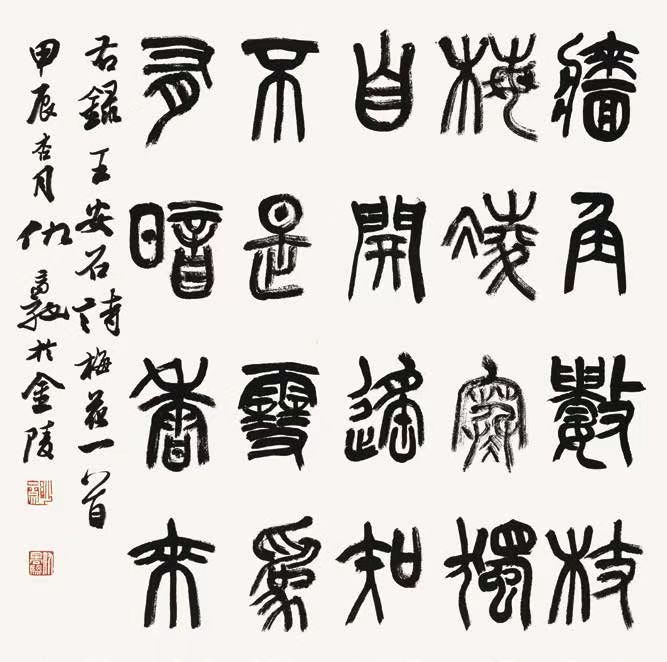 牆角數枝
梅凌寒獨
自開遙知
不是雪爲
有暗香來
右錄王安石詩梅花一首
甲辰杏月仇於金陵